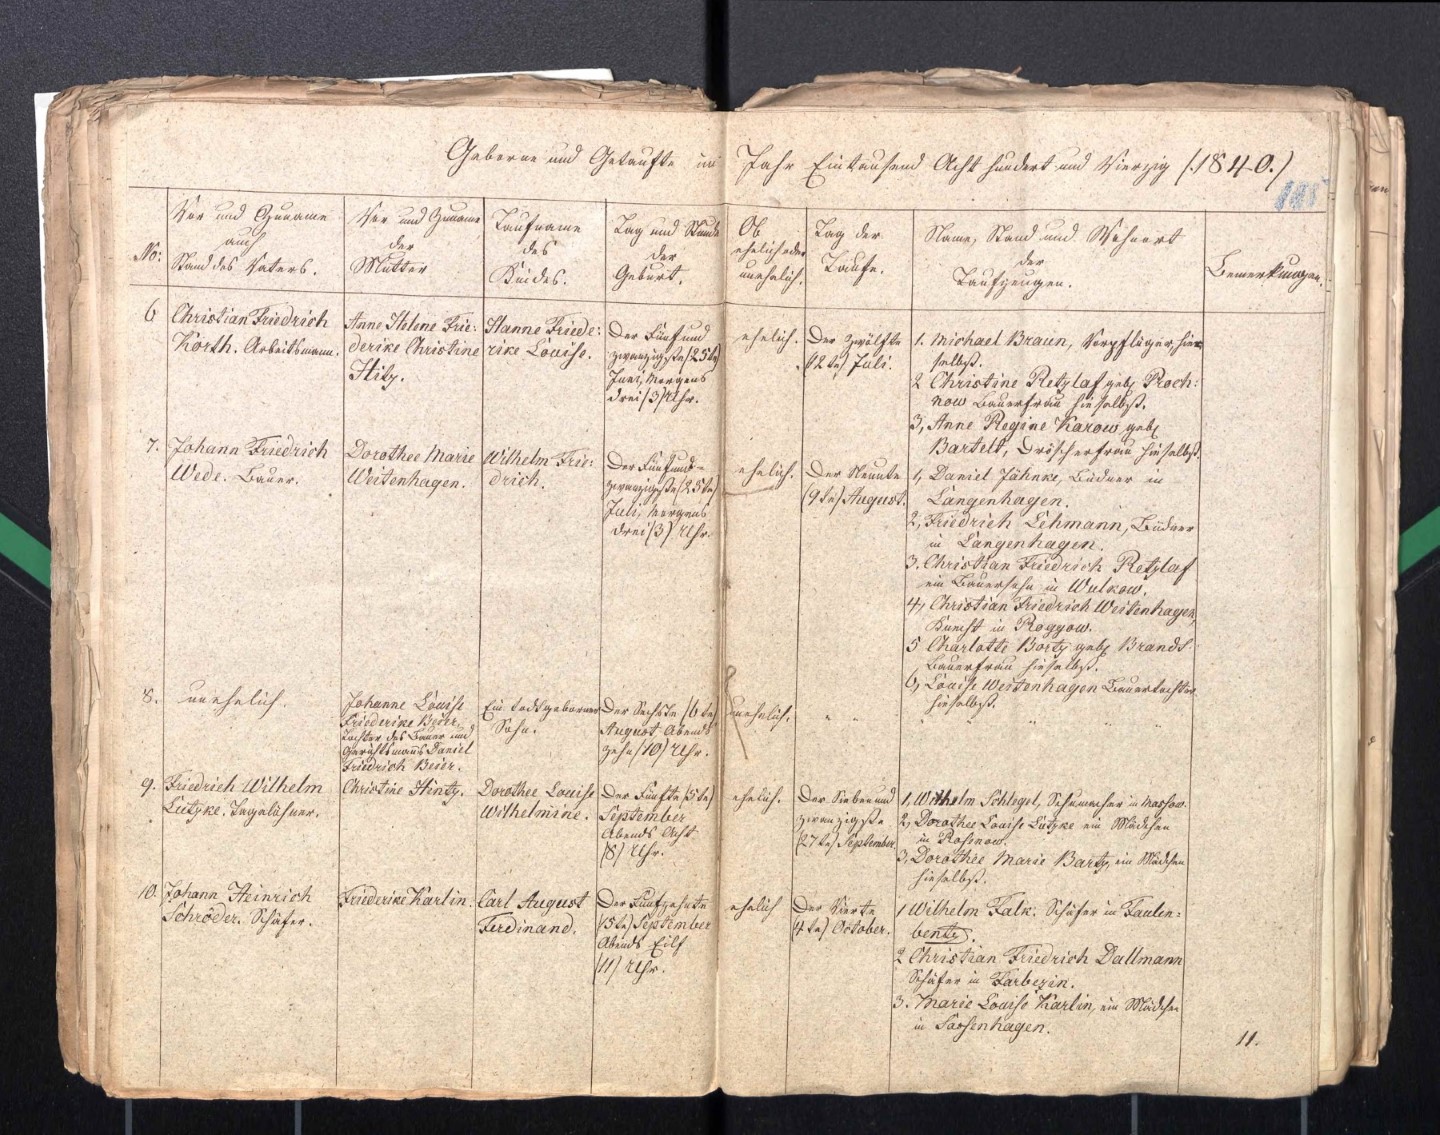 Geborne und Getaufte im Jahr Eintausend Acht hundert und Vierzig (1840.)
No:
Vor und Zuname
auch
Stand des Vaters.
Vor und Zuname
der
Mutter
Taufname
des
Kindes.
Tag und Stunde
der
Geburt.
Ob
ehelich oder
unehelich.
Tag der
Taufe.
Name, Stand und Wohnort
der
Taufzeugen.
Bemerkungen.
6
Christian Friedrich
Korth. Arbeitsmann.
Anne Helene Frie-
derike Christine
Hitz.
Hanne Friede-
rike Louise.
Der Fünf und
zwanzigste (25te)
Juni, Morgens
drei (3) Uhr.
ehelich.
Der Zwölfte
(12te) Juli.
1. Michael Braun, hier
selbst.
2 Christine Retzlaf geb. Proch-
now Bauerfrau hieselbst.
3, Anne Regine Karow geb.
Bartelt, Dröscherfrau hieselbst.
7.
Johann Friedrich
Wede. Bauer.
Dorothee Marie
Weitenhagen.
Wilhelm Frie-
drich.
Der Fünfund-
zwanzigste (25te)
Juli, Morgens
drei (3) Uhr.
ehelich.
Der Neunte
(9te) August.
1, Daniel Jähnke, Büdner in
Langenhagen.
2, Friedrich Lehmann, Büdner
in Langenhagen.
3. Christian Friedrich Retzlaf
ein Bauersohn in Wulkow.
4, Christian Friedrich Weitenhagen,
Knecht in Roggow.
5 Charlotte Bortz geb. Brandt
Bauerfrau hieselbst.
6, Louise Weitenhagen Bauertochter
hieselbst.
8.
unehelich.
Johanne Louise
Friederike Beier.
Tochter des Bauer und
Gerichtsmanns Daniel
Friedrich Beier.
Ein todtgeborner
Sohn.
Der Sechste (6te)
August Abends
zehn (10) Uhr.
unehelich.
9.
Friedrich Wilhelm
Lützke. Tagelöhner.
Christine Hintz.
Dorothee Louise
Wilhelmine.
Der Fünfte (5te)
September
Abends Acht
(8) Uhr.
ehelich.
Der Sieben und
zwanzigste
(27te) September.
1, Wilhelm Schlegel, Schumacher in Massow.
2, Dorothee Louise Lützke ein Mädchen
in Rosenow.
3, Dorothee Marie Bartz, ein Mädchen
hieselbst.
10.
Johann Heinrich
Schröder. Schäfer.
Friederike Karlin.
Carl August
Ferdinand.
Der Fünfzehnte
(15te) September
Abends Eilf
(11) Uhr.
ehelich
Der Vierte
(4te) October.
1 Wilhelm Falk. Schäfer in Faulen-
bentz.
2 Christian Friedrich Dallmann
Schäfer in Farbezin.
3. Marie Louise Karlin, ein Mädchen
in Sassenhagen.
11.